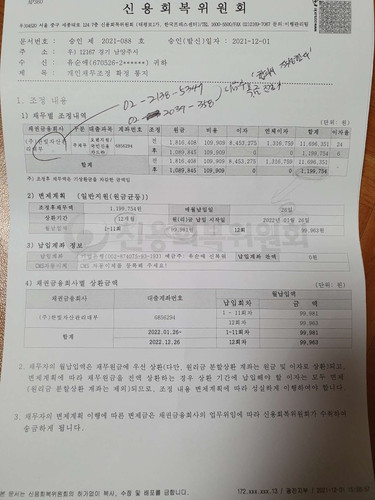 신용회복위원회
우)04520 서울 중구 세종대로 124 7층 신용회복위원회 (태평로1가, 한국프레스센터)/TEL
문서번호 : 승인 제 2021-088 호 승인(발신)일자 : 2021-12-01
주 소 : 우) 12167 경기 남양주시
수 신 : 유순애(670526-2******) 귀하
제 목 : 개인채무조정 확정 통지
02-2138-5349
1. 조정 내용
1) 채무별 조정내역
채권금융회사 구분 대출과목 계좌번호 조정 원금 비용 이자 연체이자 합계 이자율
6856294 전 1,816,408 109,909 8,453,275 1,316,759 11,696,351 24
후 1,089,845 109,909 0 0 1,199,754 0
합계 전 1,816,408 109,909 8,453,275 1,316,759 11,696,351
후 1,089,845 109,909 0 0 1,199,754
주) 조정후 채무액은 기상환금을 차감한 금액임
2) 변제계획 (일반지원(원금균등))
조정후채무액 1,199,754원 매월납입일 26일
상환기간 12개월 원(리)금 납입 시작일 2022년 01월 26일
월납입액 1-11회 99,981원 12회 99,963원
3) 납입계좌 정보
납입계좌 예금주: 유순애 신복위 납입계좌 잔액 0원
CMS자동이체 CMS 자동이체를 등록해 주세요!
4) 채권금융회사별 상환금액
채권금융회사 대출계좌번호 월납입액
납입회차 금 액
(주)한빛자산관리대부 6856294 1 - 11회차 99,981
12회차 99,963
합계 2022.01.26- 1-11회차 99,981
2022.12.26 12회차 99,963
2. 채무자의 월납입액은 채무원금에 우선 상환(다만, 원리금 분할상환 계좌는 원금 및 이자로 상환)되고,
변제계획에 따라 채무원금을 전액 상환하는 경우 상환 기간에 납입해야 할 이자는 모두 면제
(원리금 분할상환 계좌는 제외)되므로, 조정 내용 변제계획에 따라 성실하게 이행하여야 합니다.
3. 채무자의 변제계획 이행에 따른 변제금은 채권금융회사의 업무위임에 따라 신용회복위원회가 수령하여
송금하게 됩니다.
본 문서는 신용회복위원회의 허가없이 복사, 수정 및 배포를 금합니다.
172.xxx.xxx.13